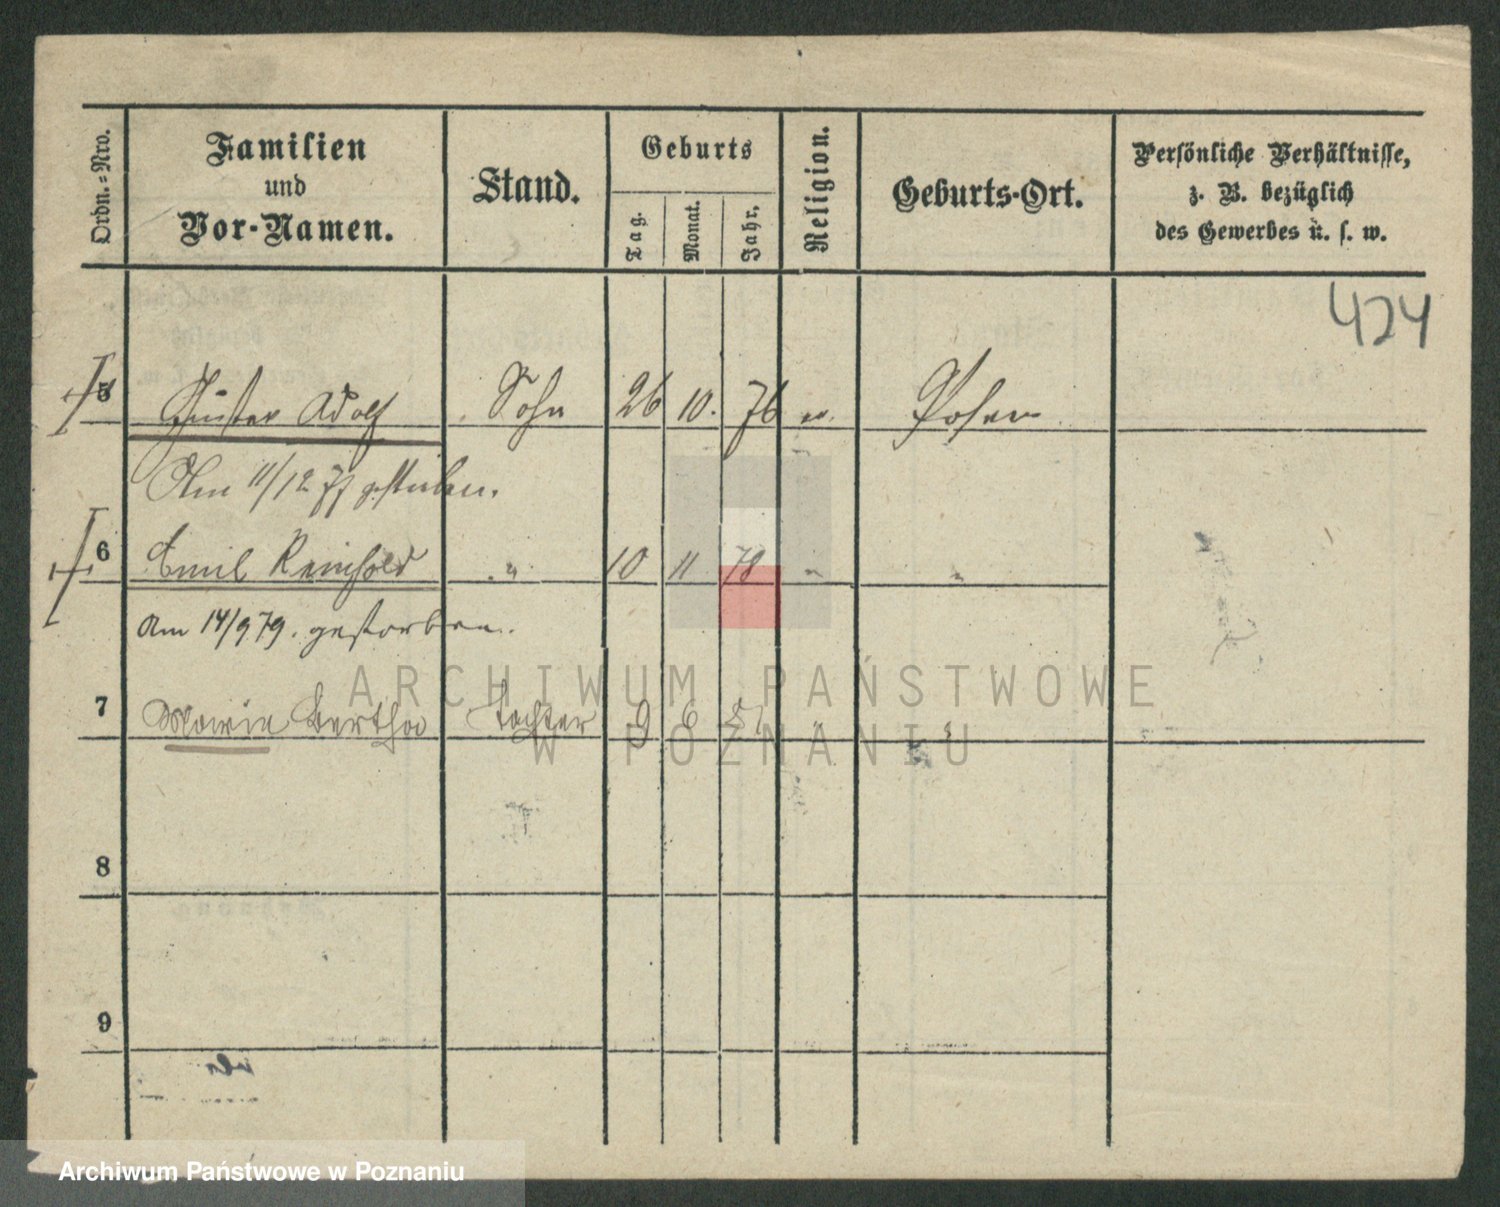 Ordn.-Nro.
Familien
und
Vor-Namen.
Stand.
Geburts
Tag.
Monat.
Jahr.
Religion.
Geburts-Ort.
Persönliche Verhältnisse,
z. B. bezüglich
des Gewerbes u. s. w.
424
5 Gustav Adolf Sohn 26 10. 76 ev. Posen
Am 11/12 77 gestorben.
6 Emil Reinhold " 10 11 78 " "
Am 14/9 79. gestorben.
7 Marie Bertha Tochter 9 6 " "
8
9
ARCHIWUM PAŃSTWOWE
W POZNANIU
Archiwum Państwowe w Poznaniu